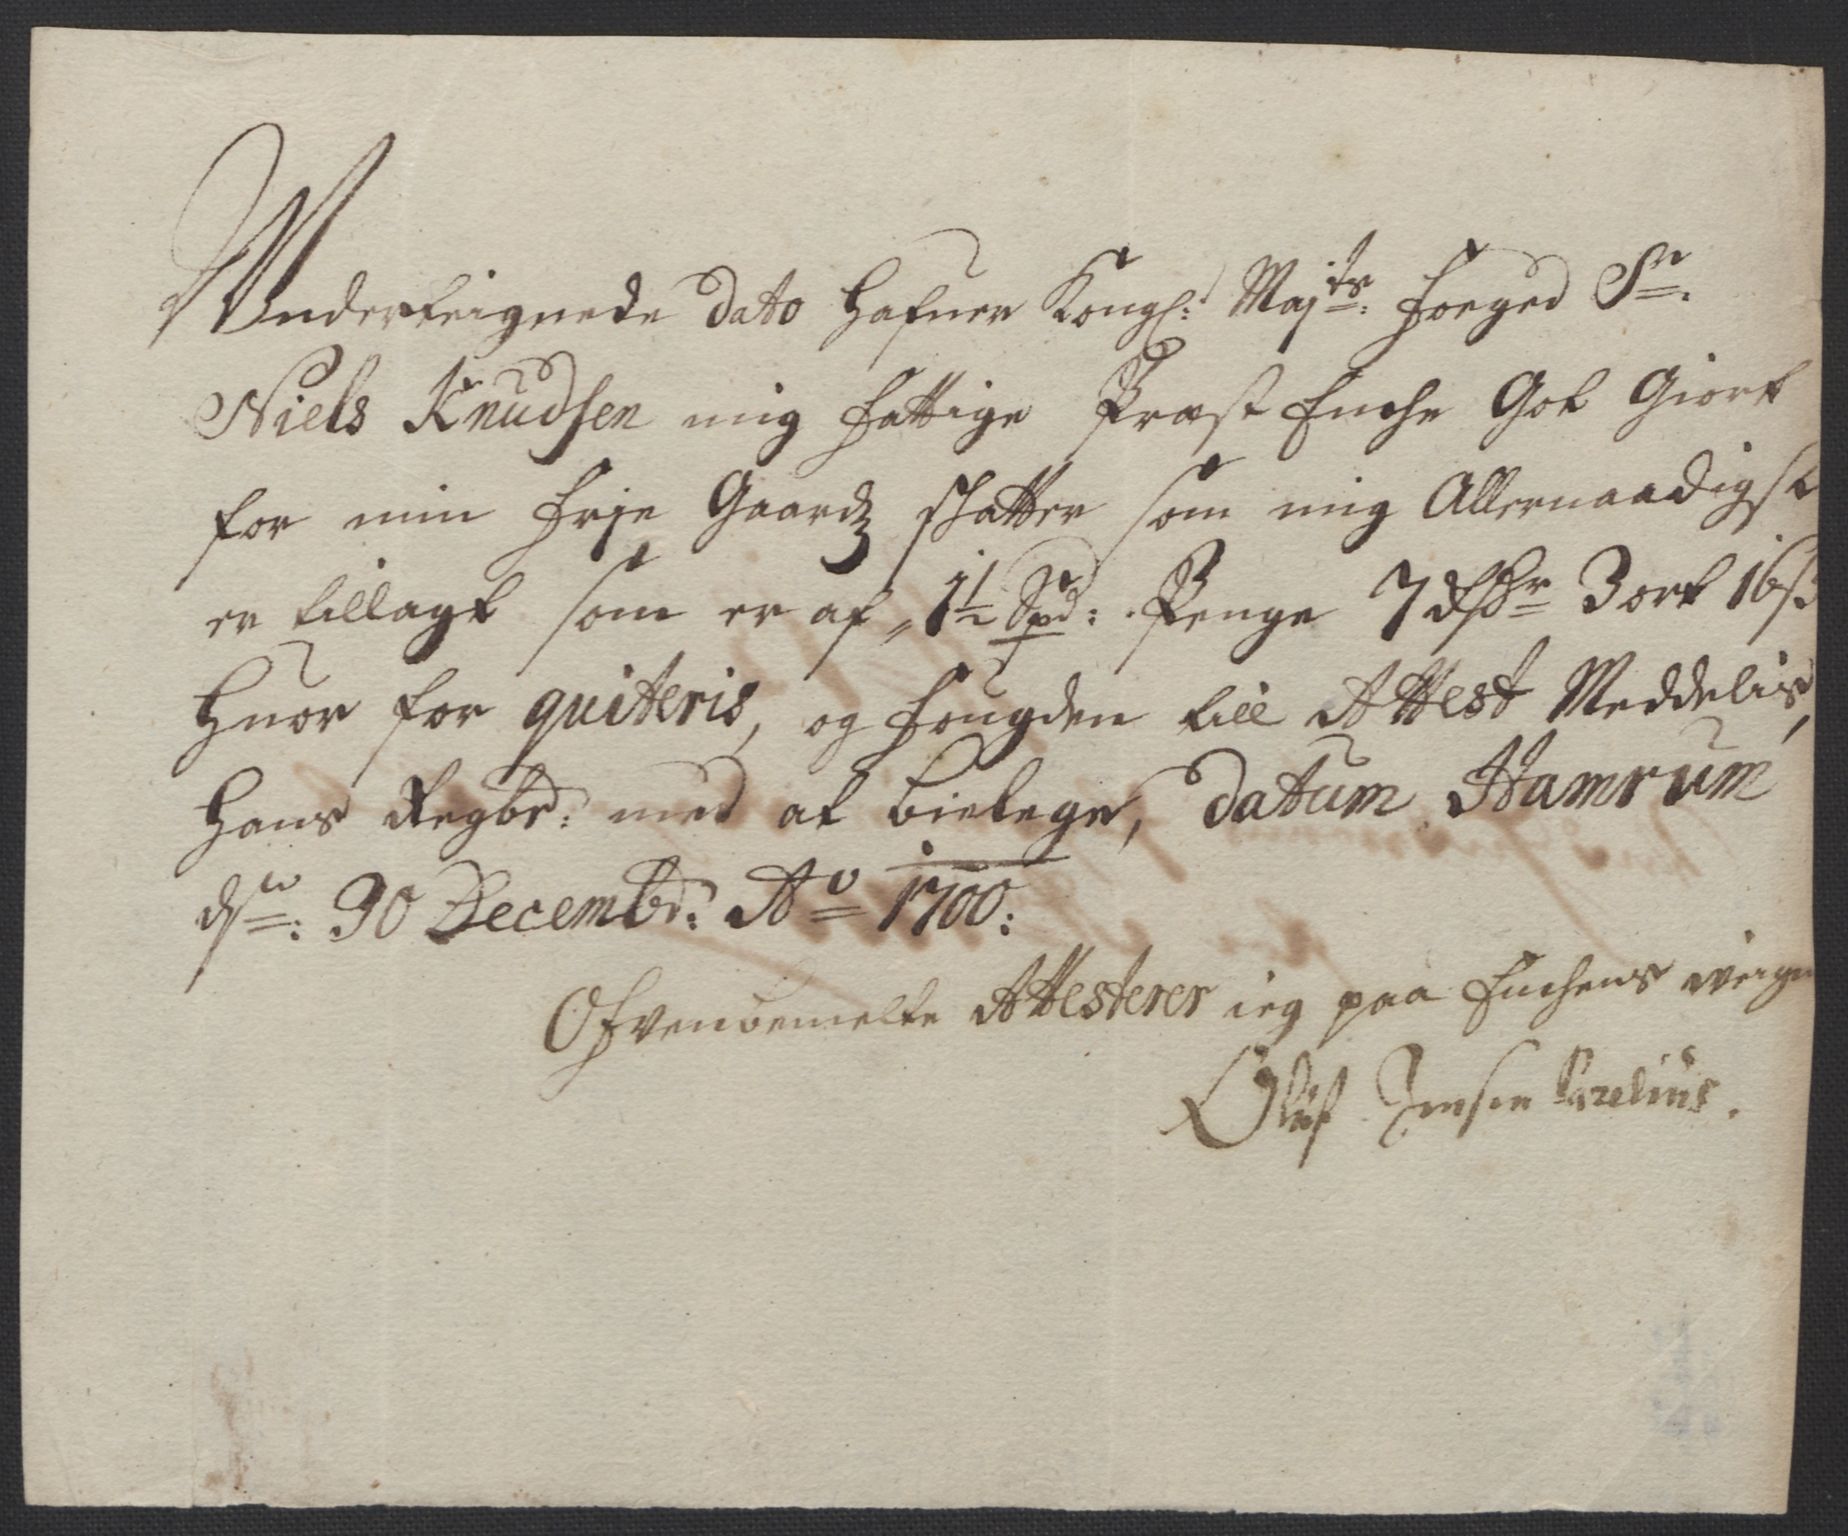 Underteignede dato hafuer Kongl: Majts: Foeged Sr.
Niels Knudsen mig fattige Præst Enche Got Giort
for min frje Gaardz schatter som mig Allernaadigst
er tillagt som er af 1½ Spd: Penge 7 Rdr 3 ort 16 s
huor for quiteris, og fougden till Attest Meddelis,
hans Regbr: med at bielege, datum Hamrum
dn: 30 Decembr: Ao 1700:
Ofvenbemelte Attesterer ieg paa Enchens veigne
Oluf Jensen